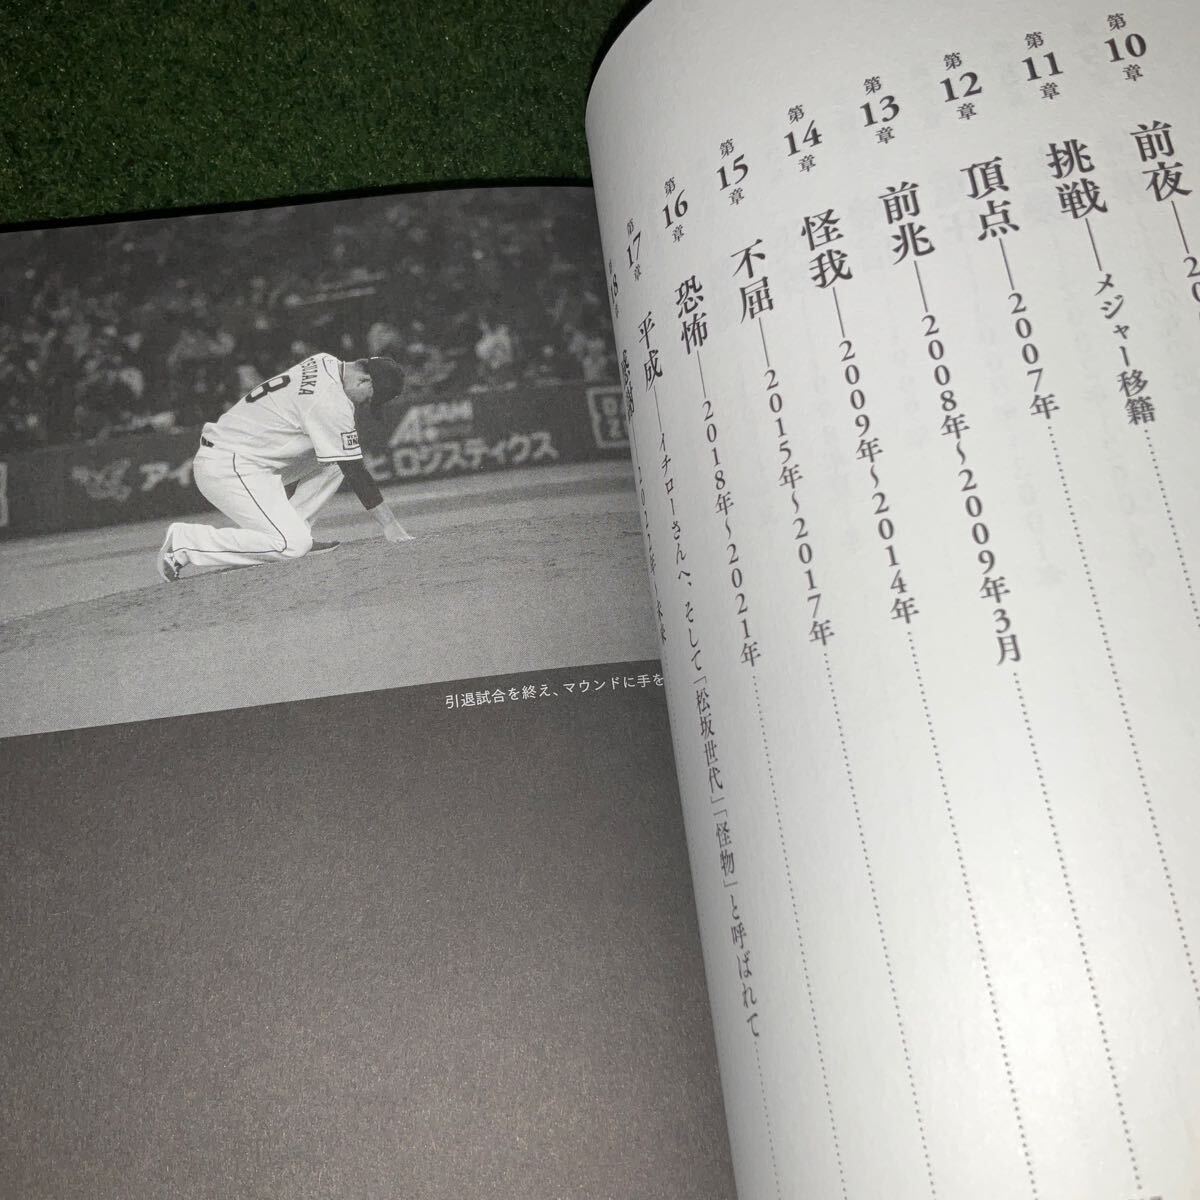 第10章 前夜
第11章 挑戦――メジャー移籍
第12章 頂点――2007年
第13章 前兆――2008年～2009年3月
第14章 怪我――2009年～2014年
第15章 不屈――2015年～2017年
第16章 恐怖――2018年～2021年
第17章 平成――イチローさんへ、そして「松坂世代」「怪物」と呼ばれて
18
ASAHI
ロジスティクス
引退試合を終え、マウンドに手を